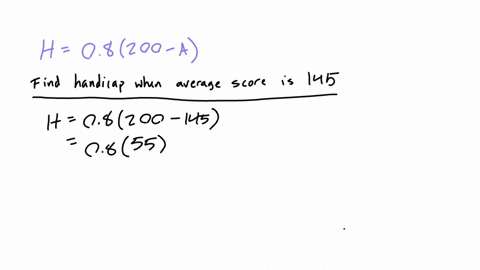 H = 0.8(200 - A)
Find handicap when average score is 145
H = 0.8(200 - 145)
= 0.8(55)